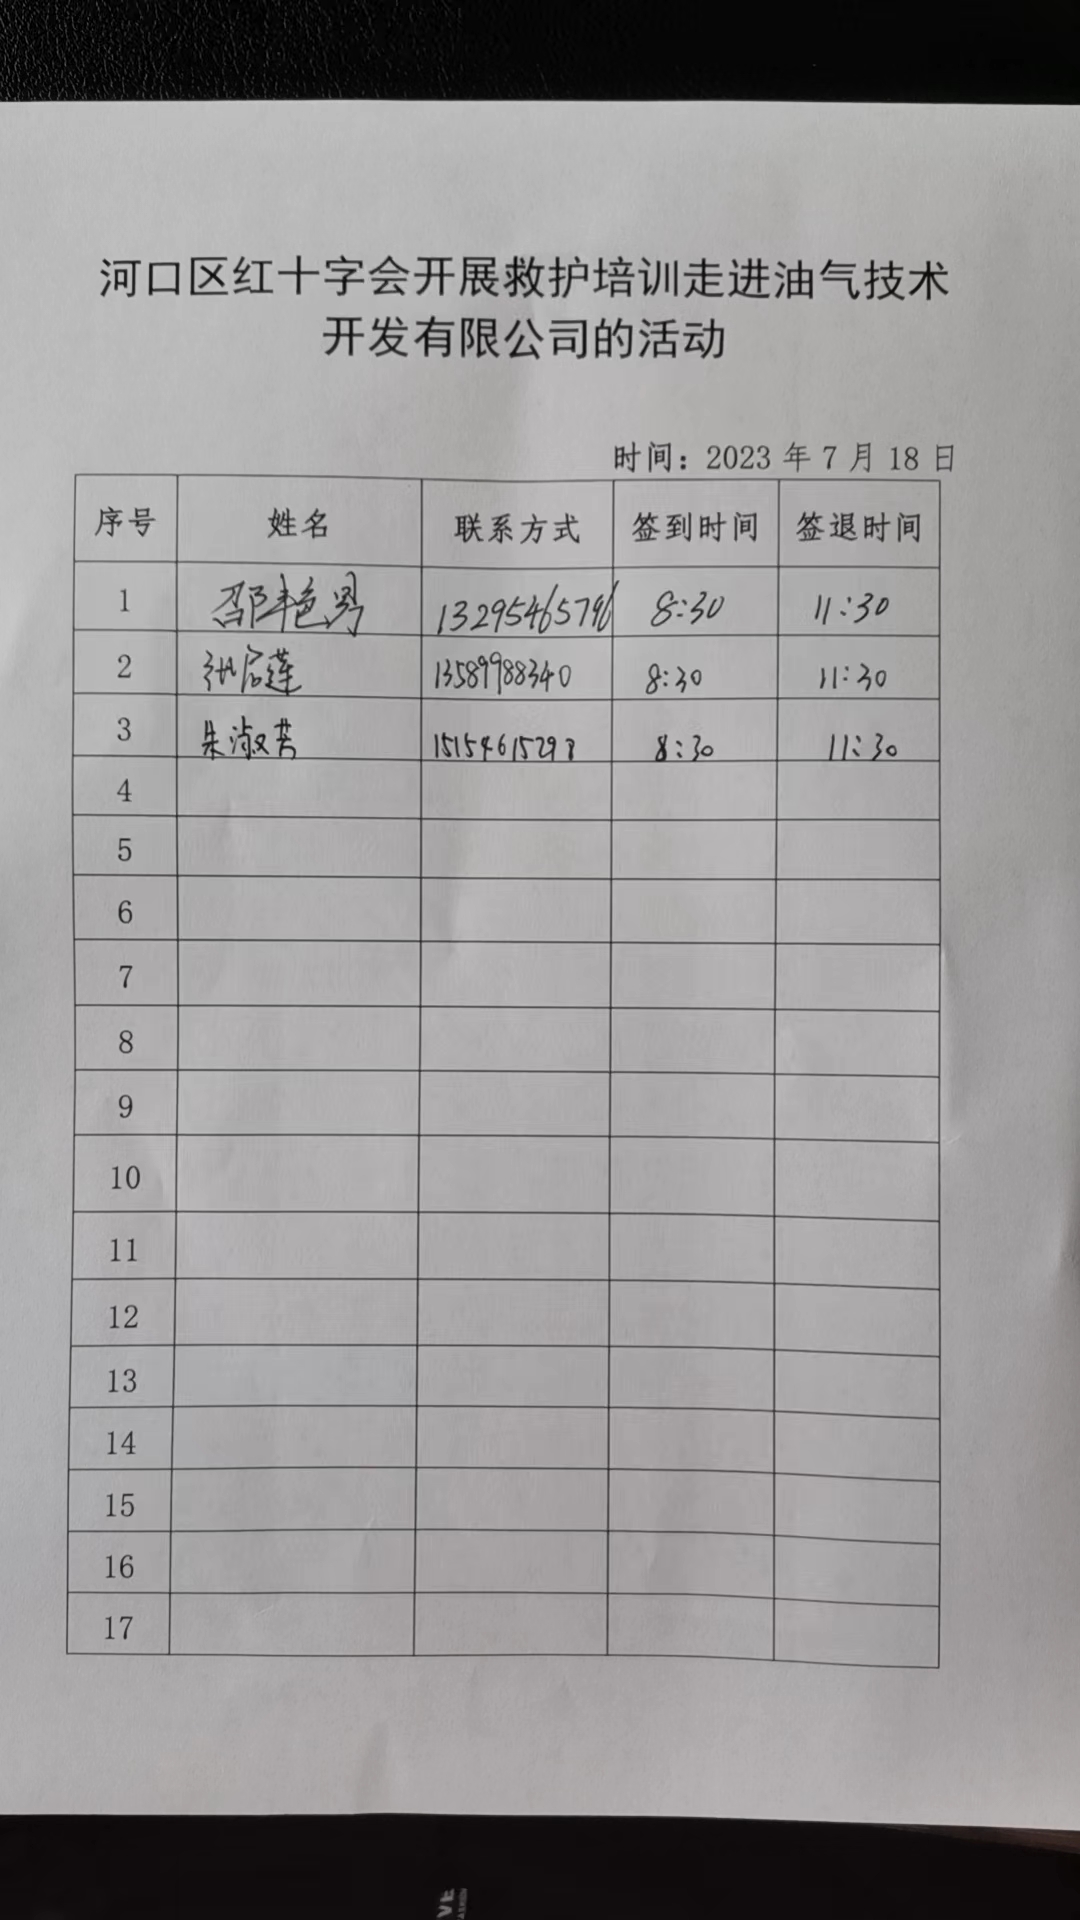 河口区红十字会开展救护培训走进油气技术
开发有限公司的活动
时间：2023 年 7 月 18 日
序号 姓名 联系方式 签到时间 签退时间
1 邵艳男 13295465796 8:30 11:30
2 张启莲 13589988340 8:30 11:30
3 朱淑芳 15154615298 8:30 11:30
4
5
6
7
8
9
10
11
12
13
14
15
16
17